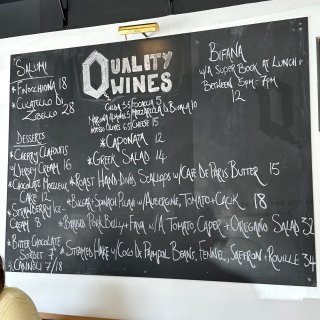 QUALITY
WINES
SALUMI
*FINOCCHIONA 18
*CULATELLO DI
ZIBELLO 28
DESSERTS
*CHERRY CLAFOUTIS
*JERSEY CREAM 16
*CHOCOLATE MOELLEUX
CAKE 12
*STRAWBERRY ICE
CREAM 8
*BITTER CHOCOLATE
SORBET 7
*CANNOLI 7/18
GILDA 5.5 FOCACCIA 5
MARCONA ALMONDS 5 MOZZARELLA DI BUFALA 10
OLIVES 6.5 CHEESE 15
*CAPONATA 12
*GREEK SALAD 14
*ROAST HAND-DIVED SCALLOPS W/ CAFE DE PARIS BUTTER 15
*BULGAR + SPINACH PILAV W/ AUBERGINE, TOMATO + CACIK 18
*BRAISED PORK BELLY + FAVA W/ A TOMATO, CAPER + OREGANO SALAD 32
*STEAMED HAKE W/ COCO DE PAIMPOL BEANS, FENNEL, SAFFRON + ROUILLE 34
BIFANA
W/A SUPER BOCK AT LUNCH +
BETWEEN 5PM-7PM
12